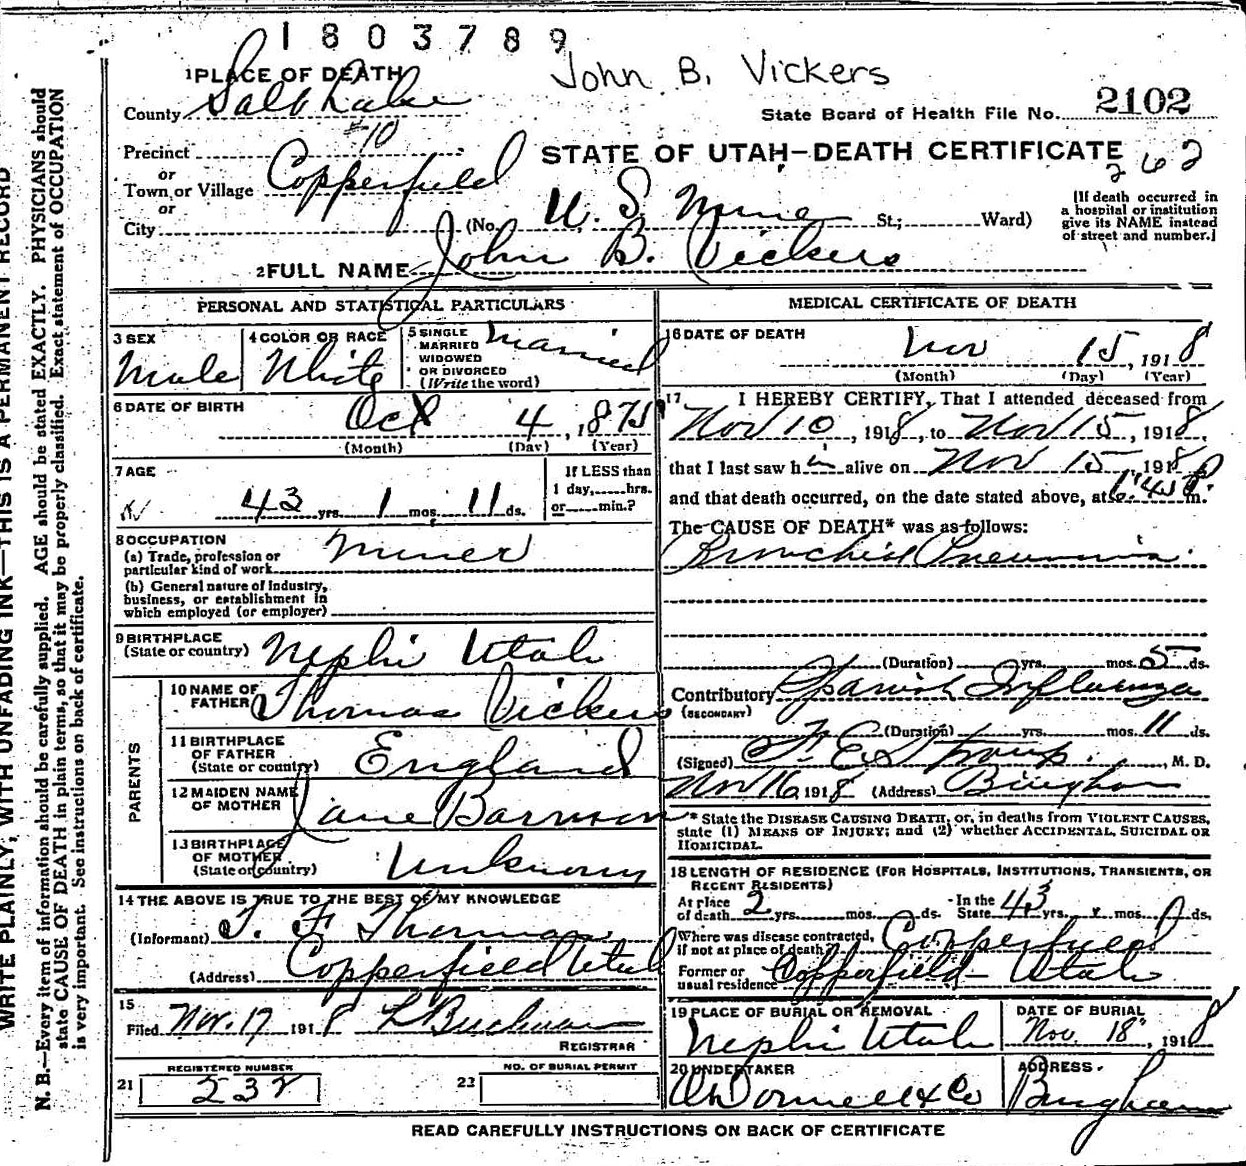 1803789
John B. Vickers
1 PLACE OF DEATH
County Salt Lake
State Board of Health File No. 2102
Precinct #10
or
Town or Village Copperfield
or
City
STATE OF UTAH—DEATH CERTIFICATE
262
(No. U. S. Mine St.; Ward)
[If death occurred in
a hospital or institution
give its NAME instead
of street and number.]
2 FULL NAME John B. Vickers
PERSONAL AND STATISTICAL PARTICULARS
3 SEX
Male
4 COLOR OR RACE
White
5 SINGLE
MARRIED
WIDOWED
OR DIVORCED
(Write the word)
Married
6 DATE OF BIRTH
Oct 4, 1875
(Month) (Day) (Year)
7 AGE
43 yrs. 1 mos. 11 ds.
If LESS than
1 day,......hrs.
or......min.?
8 OCCUPATION
(a) Trade, profession or
particular kind of work Miner
(b) General nature of industry,
business, or establishment in
which employed (or employer)
9 BIRTHPLACE
(State or country) Nephi Utah
PARENTS
10 NAME OF
FATHER Thomas Vickers
11 BIRTHPLACE
OF FATHER
(State or country) England
12 MAIDEN NAME
OF MOTHER Jane
13 BIRTHPLACE
OF MOTHER
(State or country) Unknown
14 THE ABOVE IS TRUE TO THE BEST OF MY KNOWLEDGE
(Informant) T. F. Thomas
(Address) Copperfield Utah
15
Filed Nov. 17 1918 L Buchman
REGISTRAR
REGISTERED NUMBER
21 232
NO. OF BURIAL PERMIT
22
MEDICAL CERTIFICATE OF DEATH
16 DATE OF DEATH
Nov 15, 1918
(Month) (Day) (Year)
17 I HEREBY CERTIFY, That I attended deceased from
Nov 10, 1918, to Nov 15, 1918,
that I last saw him alive on Nov 15 1918
and that death occurred, on the date stated above, at 1:45 P. m.
The CAUSE OF DEATH* was as follows:
Bronchial Pneumonia
(Duration) yrs. mos. 5 ds.
Contributory Spanish Influenza
(SECONDARY)
(Duration) yrs. mos. 11 ds.
(Signed) F. E. Straup, M. D.
Nov 16 1918 (Address) Bingham
* State the DISEASE CAUSING DEATH, or, in deaths from VIOLENT CAUSES,
state (1) MEANS OF INJURY; and (2) whether ACCIDENTAL, SUICIDAL OR
HOMICIDAL.
18 LENGTH OF RESIDENCE (FOR HOSPITALS, INSTITUTIONS, TRANSIENTS, OR
RECENT RESIDENTS)
At place
of death 2 yrs. mos. ds.
In the
State 43 yrs. mos. ds.
Where was disease contracted,
if not at place of death? Copperfield
Former or
usual residence Copperfield—Utah
19 PLACE OF BURIAL OR REMOVAL
Nephi Utah
DATE OF BURIAL
Nov. 18, 1918
20 UNDERTAKER
O'Donnell & Co
ADDRESS
Bingham
READ CAREFULLY INSTRUCTIONS ON BACK OF CERTIFICATE
WRITE PLAINLY, WITH UNFADING INK—THIS IS A PERMANENT RECORD
N. B.—Every item of information should be carefully supplied. AGE should be stated EXACTLY. PHYSICIANS should
state CAUSE OF DEATH in plain terms, so that it may be properly classified. Exact statement of OCCUPATION
is very important. See instructions on back of certificate.